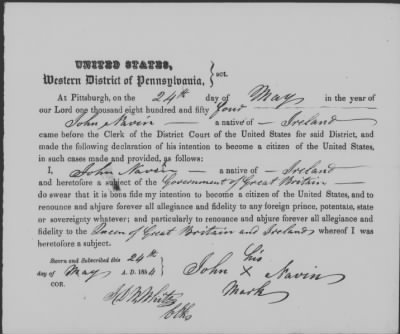 UNITED STATES,
Western District of Pennsylvania, } sct.
At Pittsburgh, on the 24th day of May in the year of
our Lord one thousand eight hundred and fifty four
John Navin a native of Ireland
came before the Clerk of the District Court of the United States for said District, and
made the following declaration of his intention to become a citizen of the United States,
in such cases made and provided, as follows:
I, John Navin a native of Ireland
and heretofore a subject of the Government of Great Britain
do swear that it is bona fide my intention to become a citizen of the United States, and to
renounce and abjure forever all allegiance and fidelity to any foreign prince, potentate, state
or sovereignty whatever; and particularly to renounce and abjure forever all allegiance and
fidelity to the Queen of Great Britain and Ireland whereof I was
heretofore a subject.
Sworn and Subscribed this 24th
day of May A. D. 1854
COR.
his
John x Navin
Mark
Clk